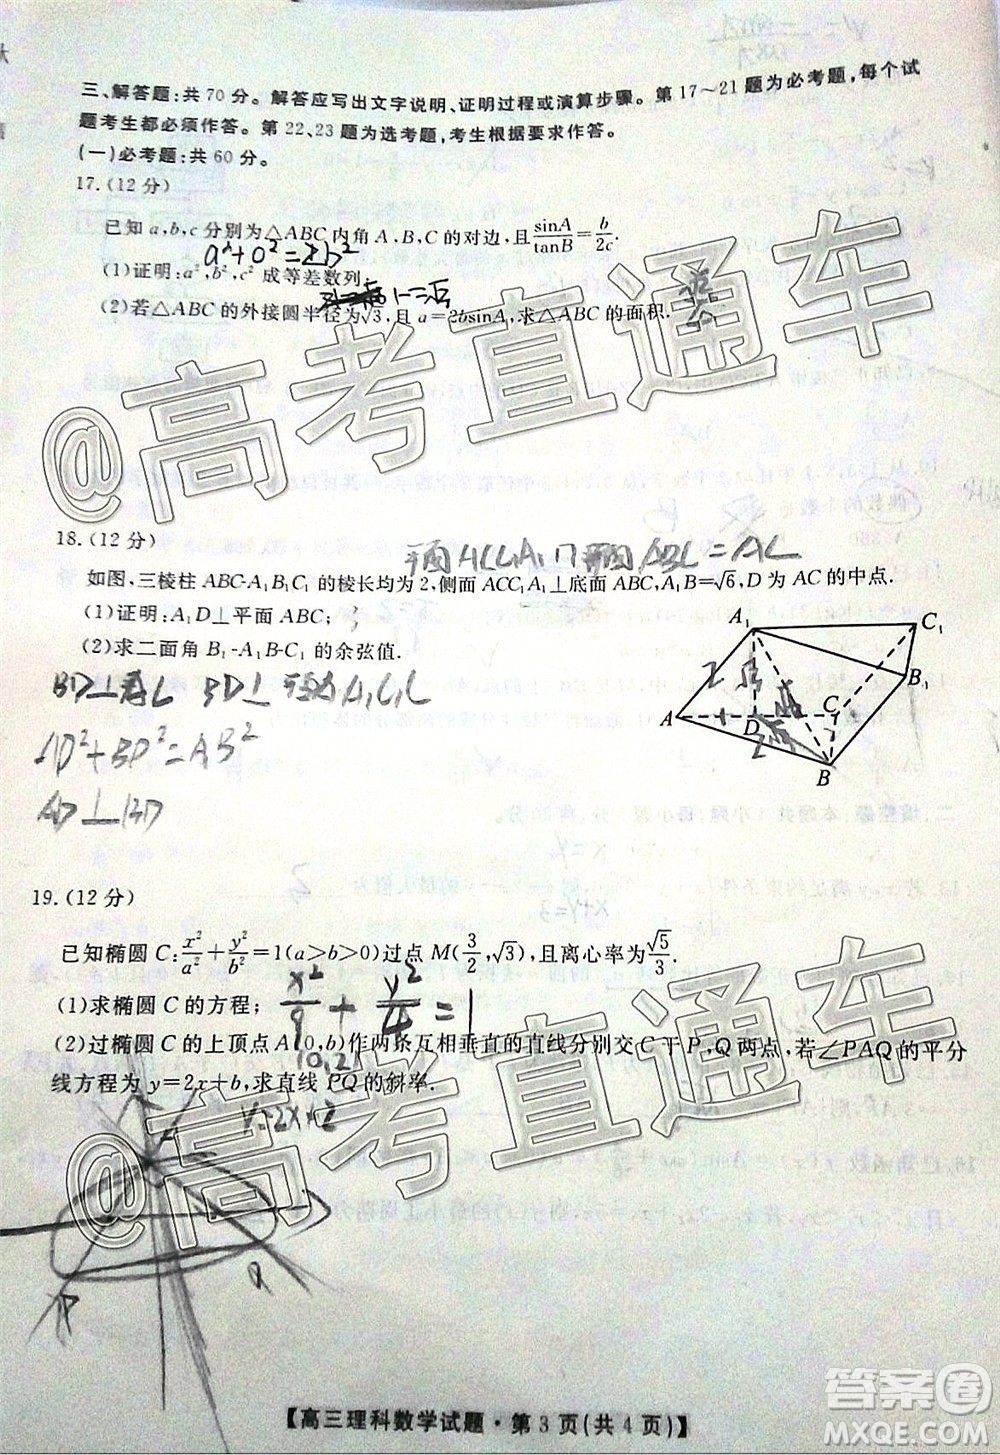 三、解答题:共70分。解答应写出文字说明、证明过程或演算步骤。第17～21题为必考题,每个试
题考生都必须作答。第22、23题为选考题,考生根据要求作答。
(一)必考题:共60分。
17.(12分)
已知a,b,c分别为△ABC内角A,B,C的对边,且sinA/tanB=b/2c.
(1)证明:a²,b²,c²成等差数列;
(2)若△ABC的外接圆半径为√3,且a=2bsinA,求△ABC的面积.
18.(12分)
如图,三棱柱ABC-A₁B₁C₁的棱长均为2,侧面ACC₁A₁⊥底面ABC,A₁B=√6,D为AC的中点.
(1)证明:A₁D⊥平面ABC;
(2)求二面角B₁-A₁B-C₁的余弦值.
A₁ C₁
B₁
A D C
B
AD²+BD²=AB²
AD⊥BD
19.(12分)
已知椭圆C:x²/a²+y²/b²=1(a>b>0)过点M(3/2,√3),且离心率为√5/3.
(1)求椭圆C的方程;
x²/9+y²/4=1
(2)过椭圆C的上顶点A(0,b)作两条互相垂直的直线分别交C于P,Q两点,若∠PAQ的平分
线方程为y=2x+b,求直线PQ的斜率.
y=2x+2
@高考直通车
@高考直通车
【高三理科数学试题·第3页(共4页)】
答案圈
MXQE.COM